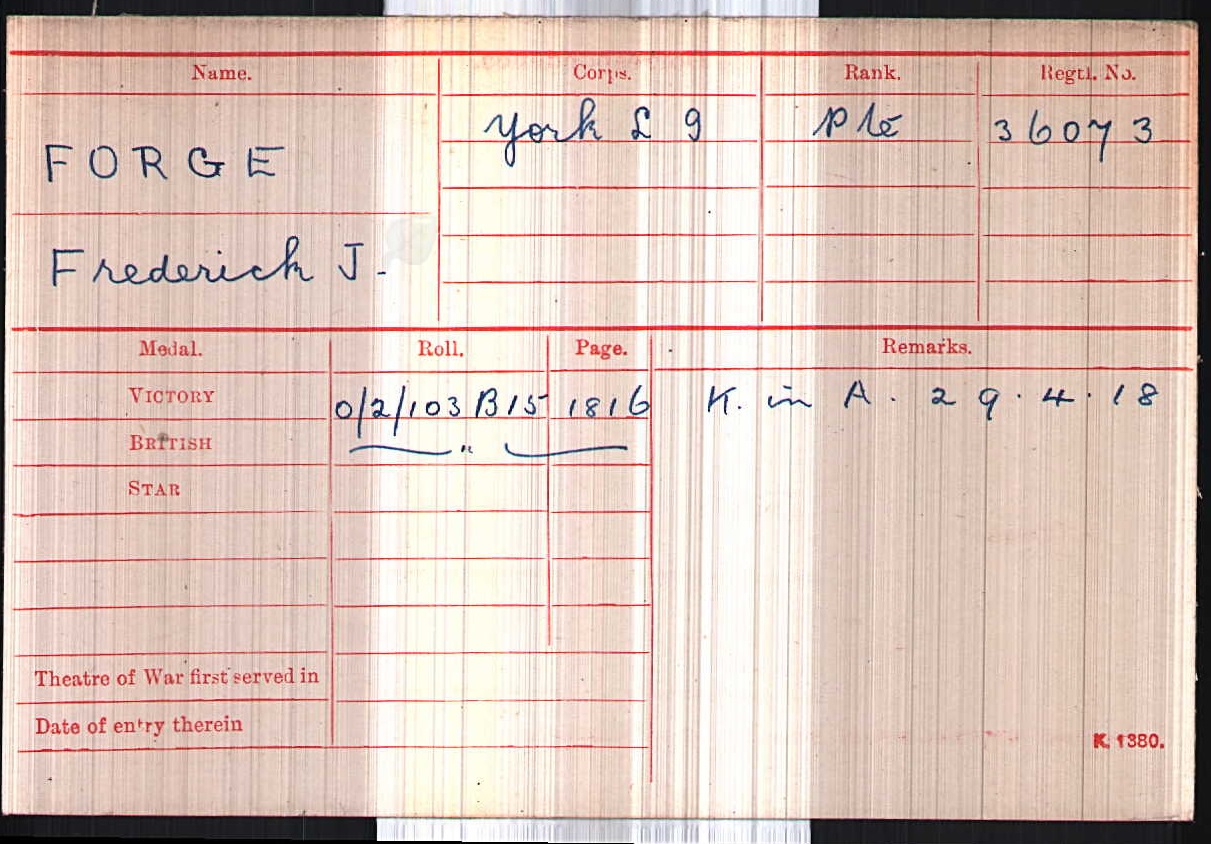 Name. Corps. Rank. Regtl. No.
FORGE York L 9 Pte 36073
Frederick J.
Medal. Roll. Page. Remarks.
VICTORY 0/2/103 B15 1816 K. in A. 29.4.18
BRITISH "
STAR
Theatre of War first served in
Date of entry therein
K. 1380.